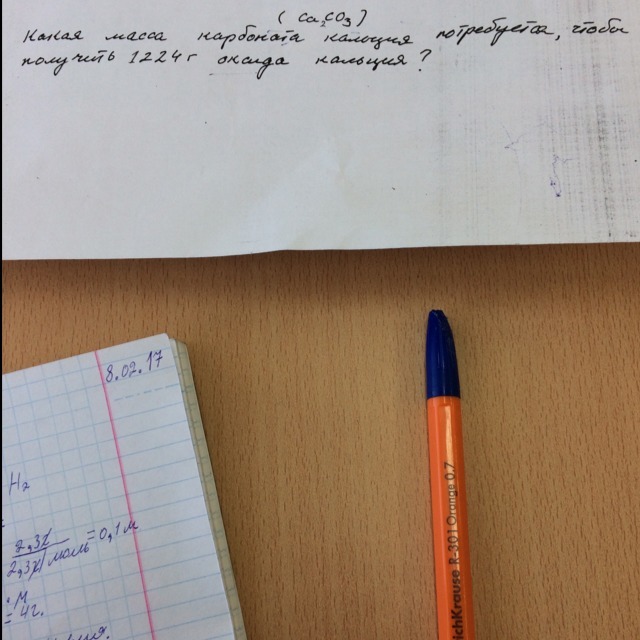 (CaCO₃)
Какая масса карбоната кальция потребуется, чтобы
получить 1224 г оксида кальция?
8.02.17
H₂
2,3г
2,3г/моль = 0,1 м
M
= 4г.
ichKrause R-301 Orange 0.7